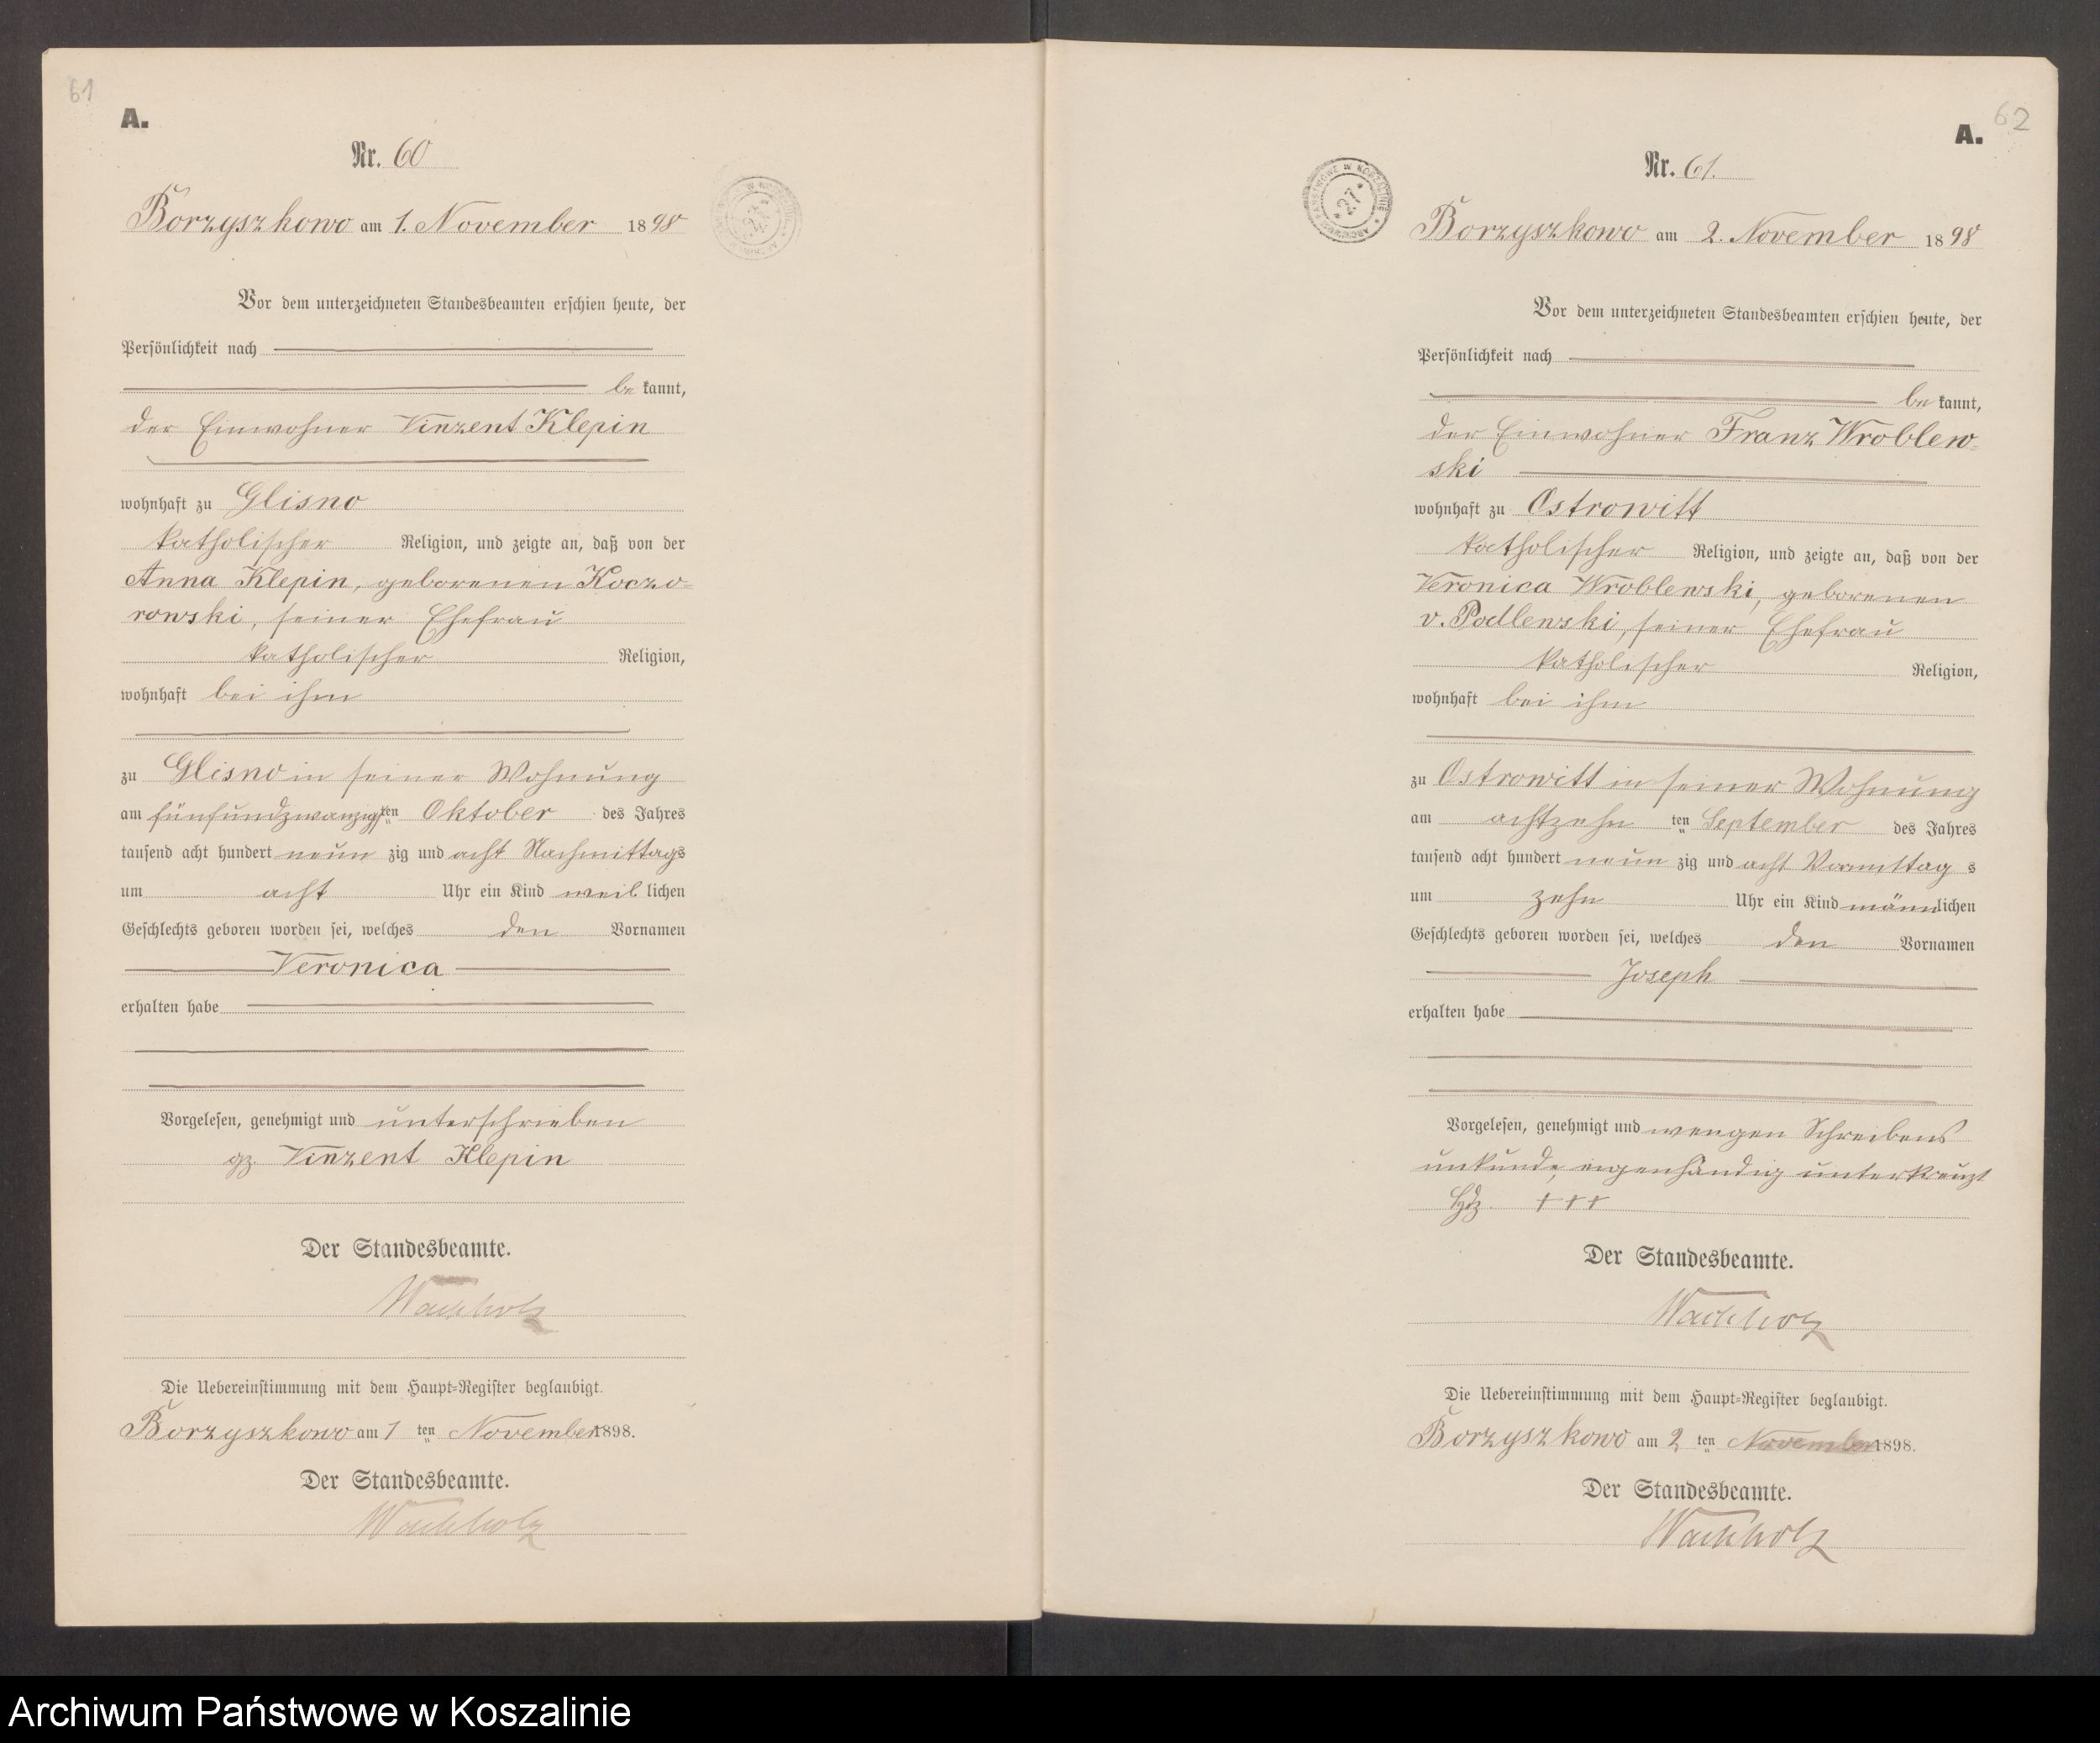 61
A.
Nr. 60
Borzyszkowo am 1. November 1898
Vor dem unterzeichneten Standesbeamten erschien heute, der
Persönlichkeit nach
be kannt,
der Einwohner Vinzent Klepin
wohnhaft zu Glisno
katholischer Religion, und zeigte an, daß von der
Anna Klepin, geborenen Koczo-
rowski, seiner Ehefrau
katholischer Religion,
wohnhaft bei ihm
zu Glisno in seiner Wohnung
am fünfundzwanzigsten Oktober des Jahres
tausend acht hundert neun zig und acht Nachmittags
um acht Uhr ein Kind weib lichen
Geschlechts geboren worden sei, welches den Vornamen
Veronica
erhalten habe
Vorgelesen, genehmigt und unterschrieben
gz. Vinzent Klepin
Der Standesbeamte.
Wachholz
Die Uebereinstimmung mit dem Haupt-Register beglaubigt.
Borzyszkowo am 1 ten November 1898.
Der Standesbeamte.
Wachholz
62
A.
Nr. 61.
ARCHIWUM PAŃSTWOWE W KOSZALINIE * 27 *
Borzyszkowo am 2. November 1898
Vor dem unterzeichneten Standesbeamten erschien heute, der
Persönlichkeit nach
be kannt,
der Einwohner Franz Wroblew-
ski
wohnhaft zu Ostrowitt
katholischer Religion, und zeigte an, daß von der
Veronica Wroblewski, geborenen
v. Podlewski, seiner Ehefrau
katholischer Religion,
wohnhaft bei ihm
zu Ostrowitt in seiner Wohnung
am achtzehn ten September des Jahres
tausend acht hundert neun zig und acht Vormittag s
um zehn Uhr ein Kind männlichen
Geschlechts geboren worden sei, welches den Vornamen
Joseph
erhalten habe
Vorgelesen, genehmigt und wengen Schreibens
unkunde, eigenhändig unterkreuzt
Hdz. +++
Der Standesbeamte.
Wachholz
Die Uebereinstimmung mit dem Haupt-Register beglaubigt.
Borzyszkowo am 2 ten November 1898.
Der Standesbeamte.
Wachholz
Archiwum Państwowe w Koszalinie